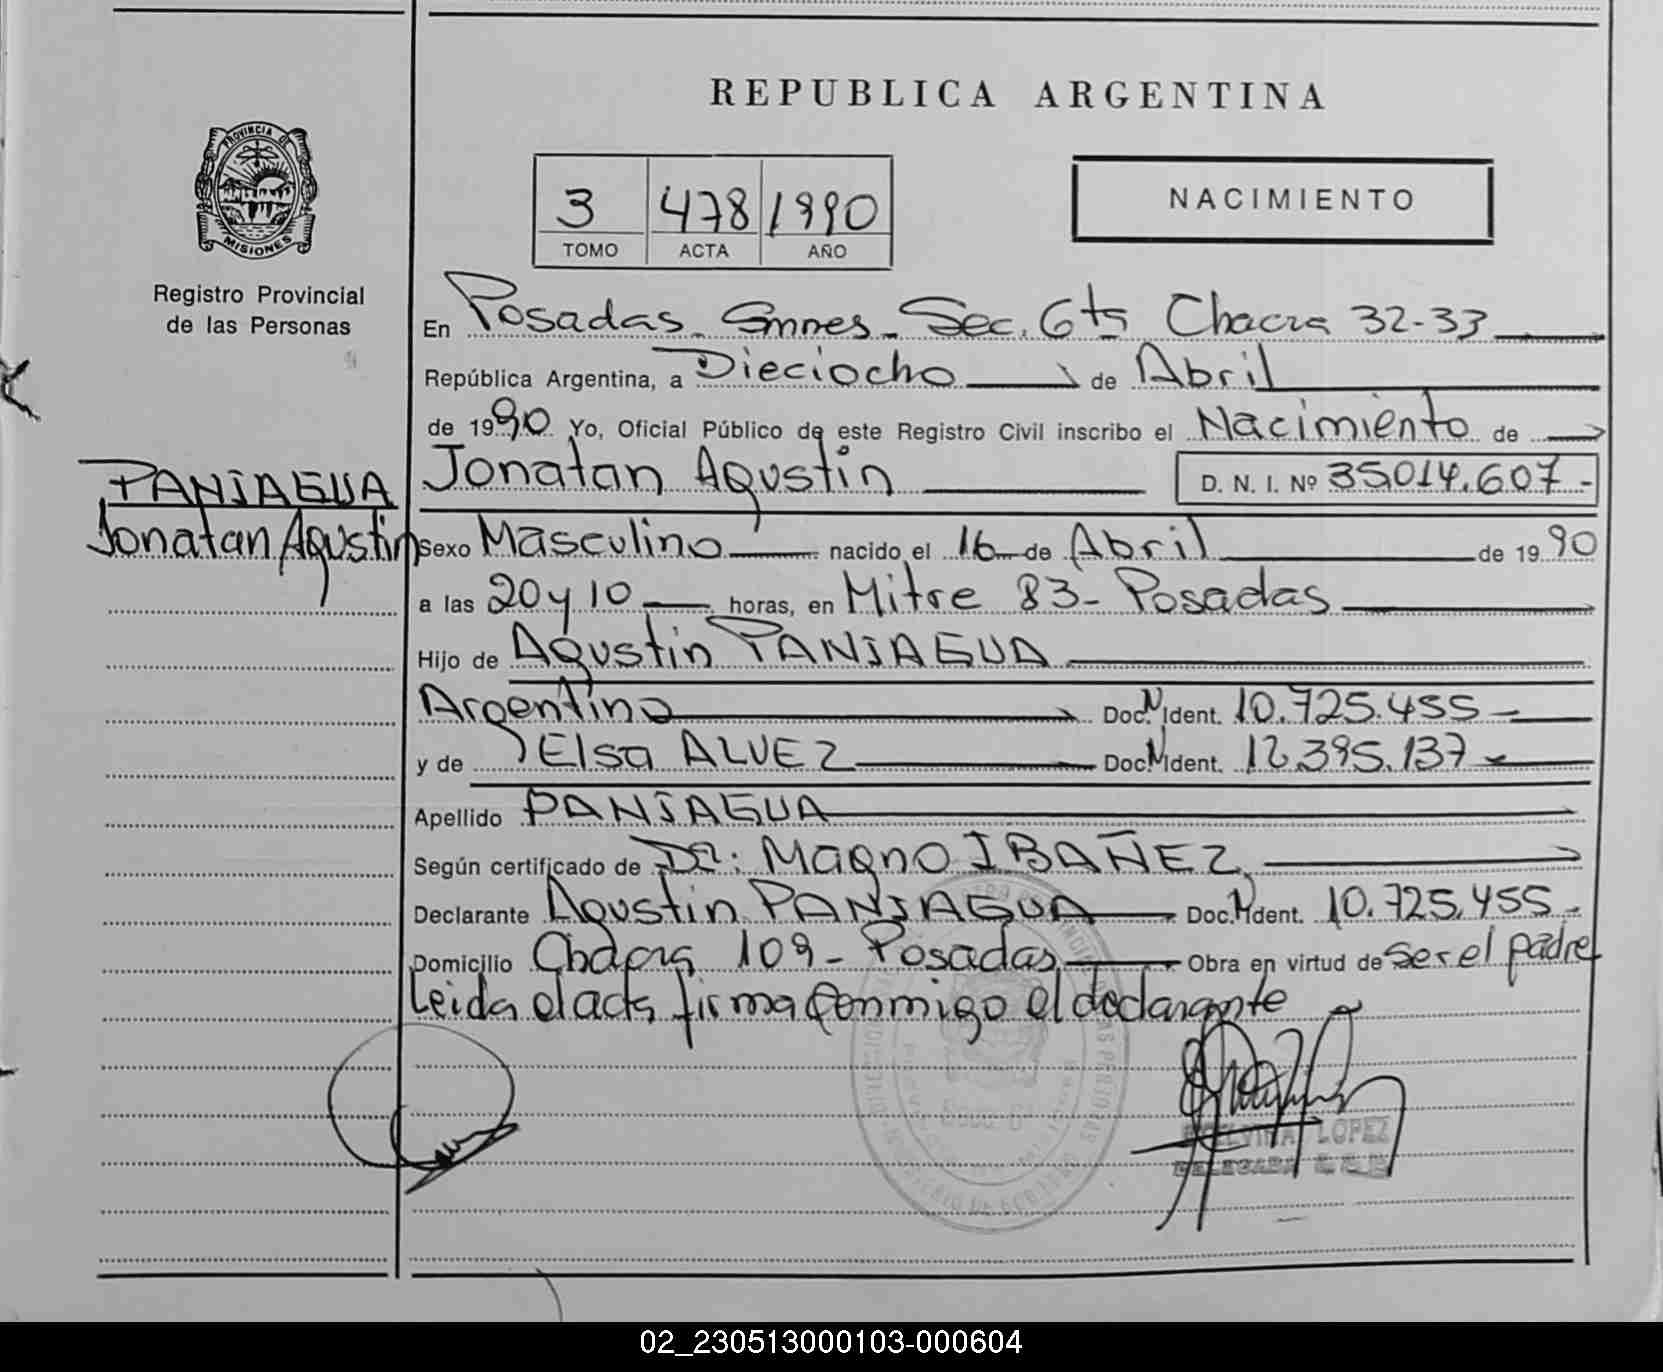 REPUBLICA ARGENTINA
PROVINCIA DE
MISIONES
Registro Provincial
de las Personas
3 478 1990
TOMO ACTA AÑO
NACIMIENTO
En Posadas Smnes Sec. 6ta Chacra 32-33
República Argentina, a Dieciocho de Abril
de 1990 Yo, Oficial Público de este Registro Civil inscribo el Nacimiento de
PANIAGUA
Jonatan Agustin
Jonatan Agustin D. N. I. Nº 35014.607-
Sexo Masculino nacido el 16 de Abril de 1990
a las 20 y 10 horas, en Mitre 83- Posadas
Hijo de Agustin PANIAGUA
Argentino Doc. N Ident. 10.725.455-
y de Elsa ALVEZ Doc. N Ident. 12.395.137-
Apellido PANIAGUA
Según certificado de Dr: Magno IBAÑEZ
Declarante Agustin PANIAGUA Doc. N Ident. 10.725.455-
Domicilio Chacra 109- Posadas Obra en virtud de ser el padre
Leida el acta firma conmigo el declarante
LOPEZ
DELEGADA
02_230513000103-000604